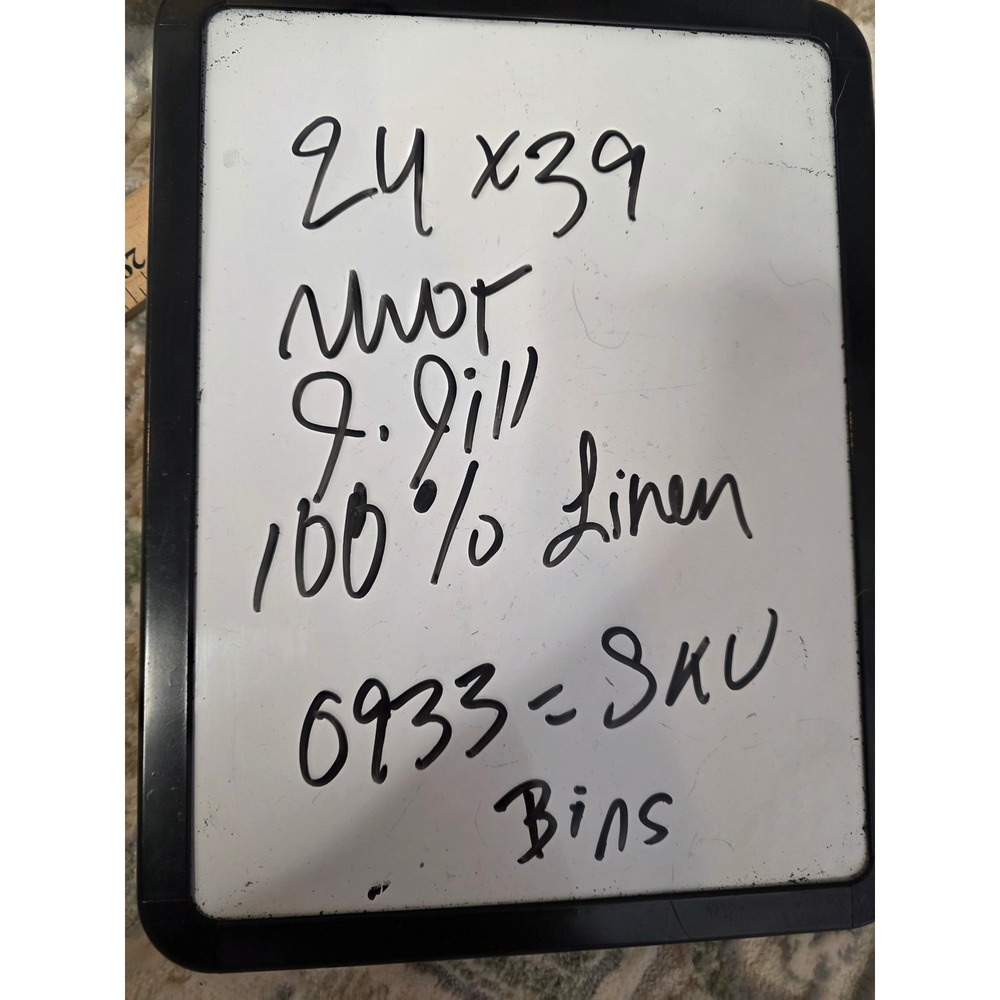 24 x 39
NWOT
J. Jill
100% Linen
0933 = SKU
Bins
20